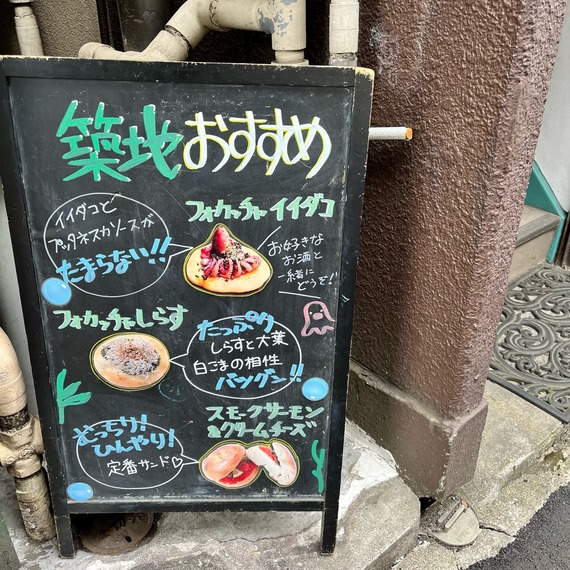 築地おすすめ
フォカッチャイイダコ
イイダコと
プッタネスカソースが
たまらない!!
お好きな
お酒と
一緒に
どうぞ!
フォカッチャしらす
たっぷり
しらすと大葉
白ごまの相性
バツグン!!
スモークサーモン
&クリームチーズ
どっちり!
ひんやり!
定番サンド♡